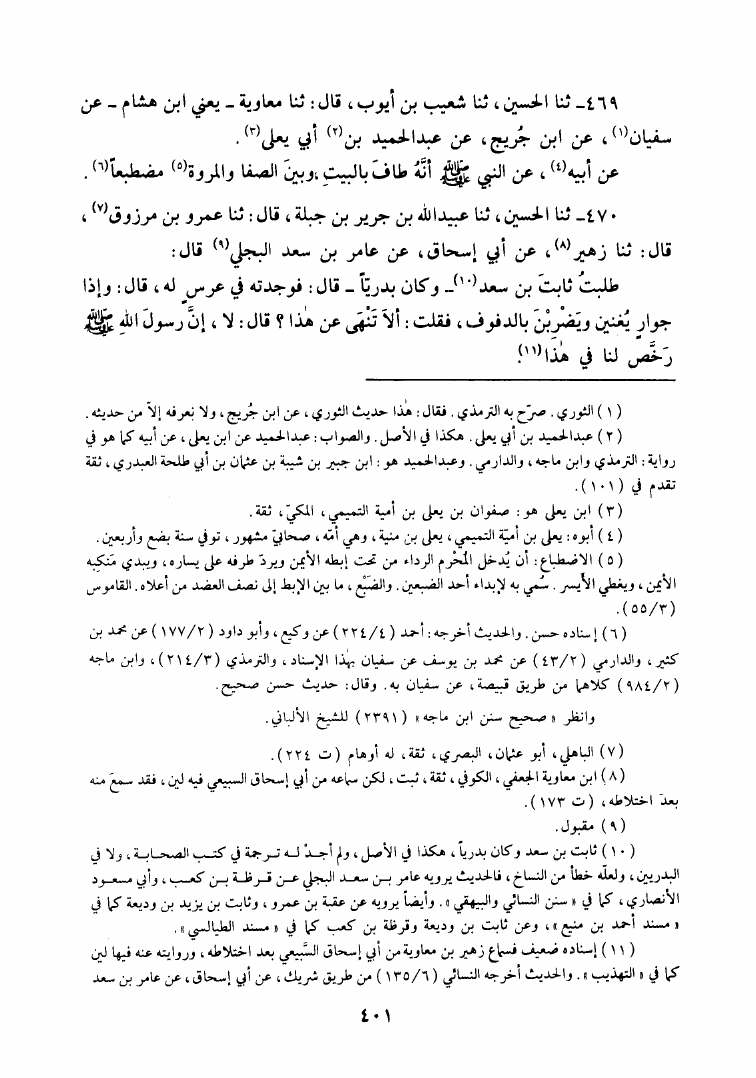 ٤٦٩ـ ثنا الحسين، ثنا شعيب بن أيوب، قال: ثنا معاوية ـ يعني ابن هشام ـ عن
سفيان(١)، عن ابن جُريج، عن عبدالحميد بن(٢) أبي يعلى(٣).
عن أبيه(٤)، عن النبي ﷺ أنَّهُ طافَ بالبيتِ، وبينَ الصفا والمروة(٥) مضطبعاً(٦).
٤٧٠ـ ثنا الحسين، ثنا عبيدالله بن جرير بن جبلة، قال: ثنا عمرو بن مرزوق(٧)،
قال: ثنا زهير(٨)، عن أبي إسحاق، عن عامر بن سعد البجلي(٩) قال:
طلبتُ ثابتَ بن سعد(١٠)ـ وكان بدريّاً ـ قال: فوجدته في عرسٍ له، قال: وإذا
جوارٍ يُغنين ويَضْرِبْنَ بالدفوف، فقلت: ألاَ تَنْهَى عن هٰذا؟ قال: لا، إنَّ رسولَ اللهِ ﷺ
رَخَّصَ لنا في هٰذا(١١).
(١) الثوري. صرّح به الترمذي. فقال: هٰذا حديث الثوري، عن ابن جُريج، ولا نعرفه إلاّ من حديثه.
(٢) عبدالحميد بن أبي يعلى. هكذا في الأصل. والصواب: عبدالحميد عن ابن يعلى، عن أبيه كما هو في
رواية: الترمذي وابن ماجه، والدارمي. وعبدالحميد هو: ابن جبير بن شيبة بن عثمان بن أبي طلحة العبدري، ثقة
تقدم في (١٠١).
(٣) ابن يعلى هو: صفوان بن يعلى بن أمية التميمي، المكيّ، ثقة.
(٤) أبوه: يعلى بن أميّة التميمي، يعلى بن منية، وهي أمّه، صحابيّ مشهور، توفي سنة بضع وأربعين.
(٥) الاضطباع: أن يُدخل المُحْرم الرداء من تحت إبطه الأيمن ويردّ طرفه على يساره، ويبدي مَنكِبه
الأيمن، ويغطي الأيسر. سُمي به لإبداء أحد الضبعين. والضَبْع، ما بين الإبط إلى نصف العضد من أعلاه. القاموس
(٥٥/٣).
(٦) إسناده حسن. والحديث أخرجه: أحمد (٢٢٤/٤) عن وكيع، وأبو داود (١٧٧/٢) عن محمد بن
كثير، والدارمي (٤٣/٢) عن محمد بن يوسف عن سفيان بهٰذا الإسناد، والترمذي (٢١٤/٣)، وابن ماجه
(٩٨٤/٢) كلاهما من طريق قبيصة، عن سفيان به. وقال: حديث حسن صحيح.
وانظر «صحيح سنن ابن ماجه» (٢٣٩١) للشيخ الألباني.
(٧) الباهلي، أبو عثمان، البصري، ثقة، له أوهام (ت ٢٢٤).
(٨) ابن معاوية الجعفي، الكوفي، ثقة، ثبت، لكن سماعه من أبي إسحاق السبيعي فيه لين، فقد سمعَ منه
بعدَ اختلاطه، (ت ١٧٣).
(٩) مقبول.
(١٠) ثابت بن سعد وكان بدرياً، هكذا في الأصل، ولم أجدْ له ترجمة في كتب الصحابة، ولا في
البدريين، ولعلّه خطأ من النساخ، فالحديث يرويه عامر بن سعد البجلي عن قرظة بن كعب، وأبي مسعود
الأنصاري، كما في «سنن النسائي والبيهقي». وأيضاً يرويه عن عقبة بن عمرو، وثابت بن يزيد بن وديعة كما في
«مسند أحمد بن منيع»، وعن ثابت بن وديعة وقرظة بن كعب كما في «مسند الطيالسي».
(١١) إسناده ضعيف فسماع زهير بن معاوية من أبي إسحاق السَّبيعي بعد اختلاطه، وروايته عنه فيها لين
كما في «التهذيب». والحديث أخرجه النسائي (١٣٥/٦) من طريق شريك، عن أبي إسحاق، عن عامر بن سعد
٤٠١